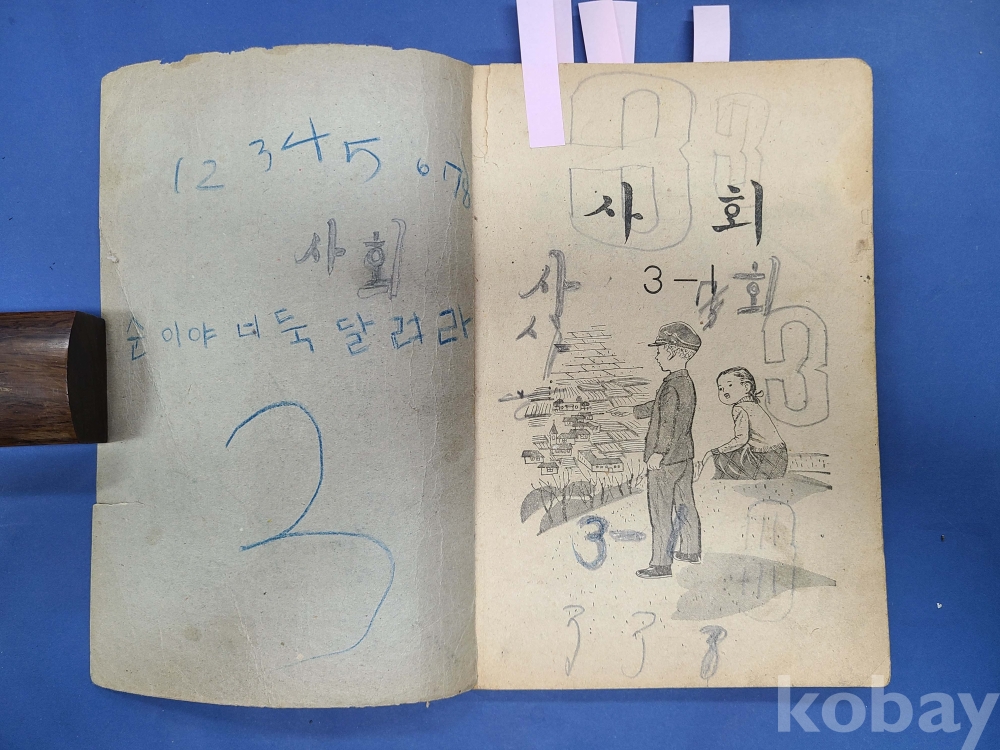 1 2 3 4 5 6 7 8
사회
순이야 너 둑 달려라
3
3 3
사 회
3-1
사 회
사
3
3-1
3
3 3 8
kobay